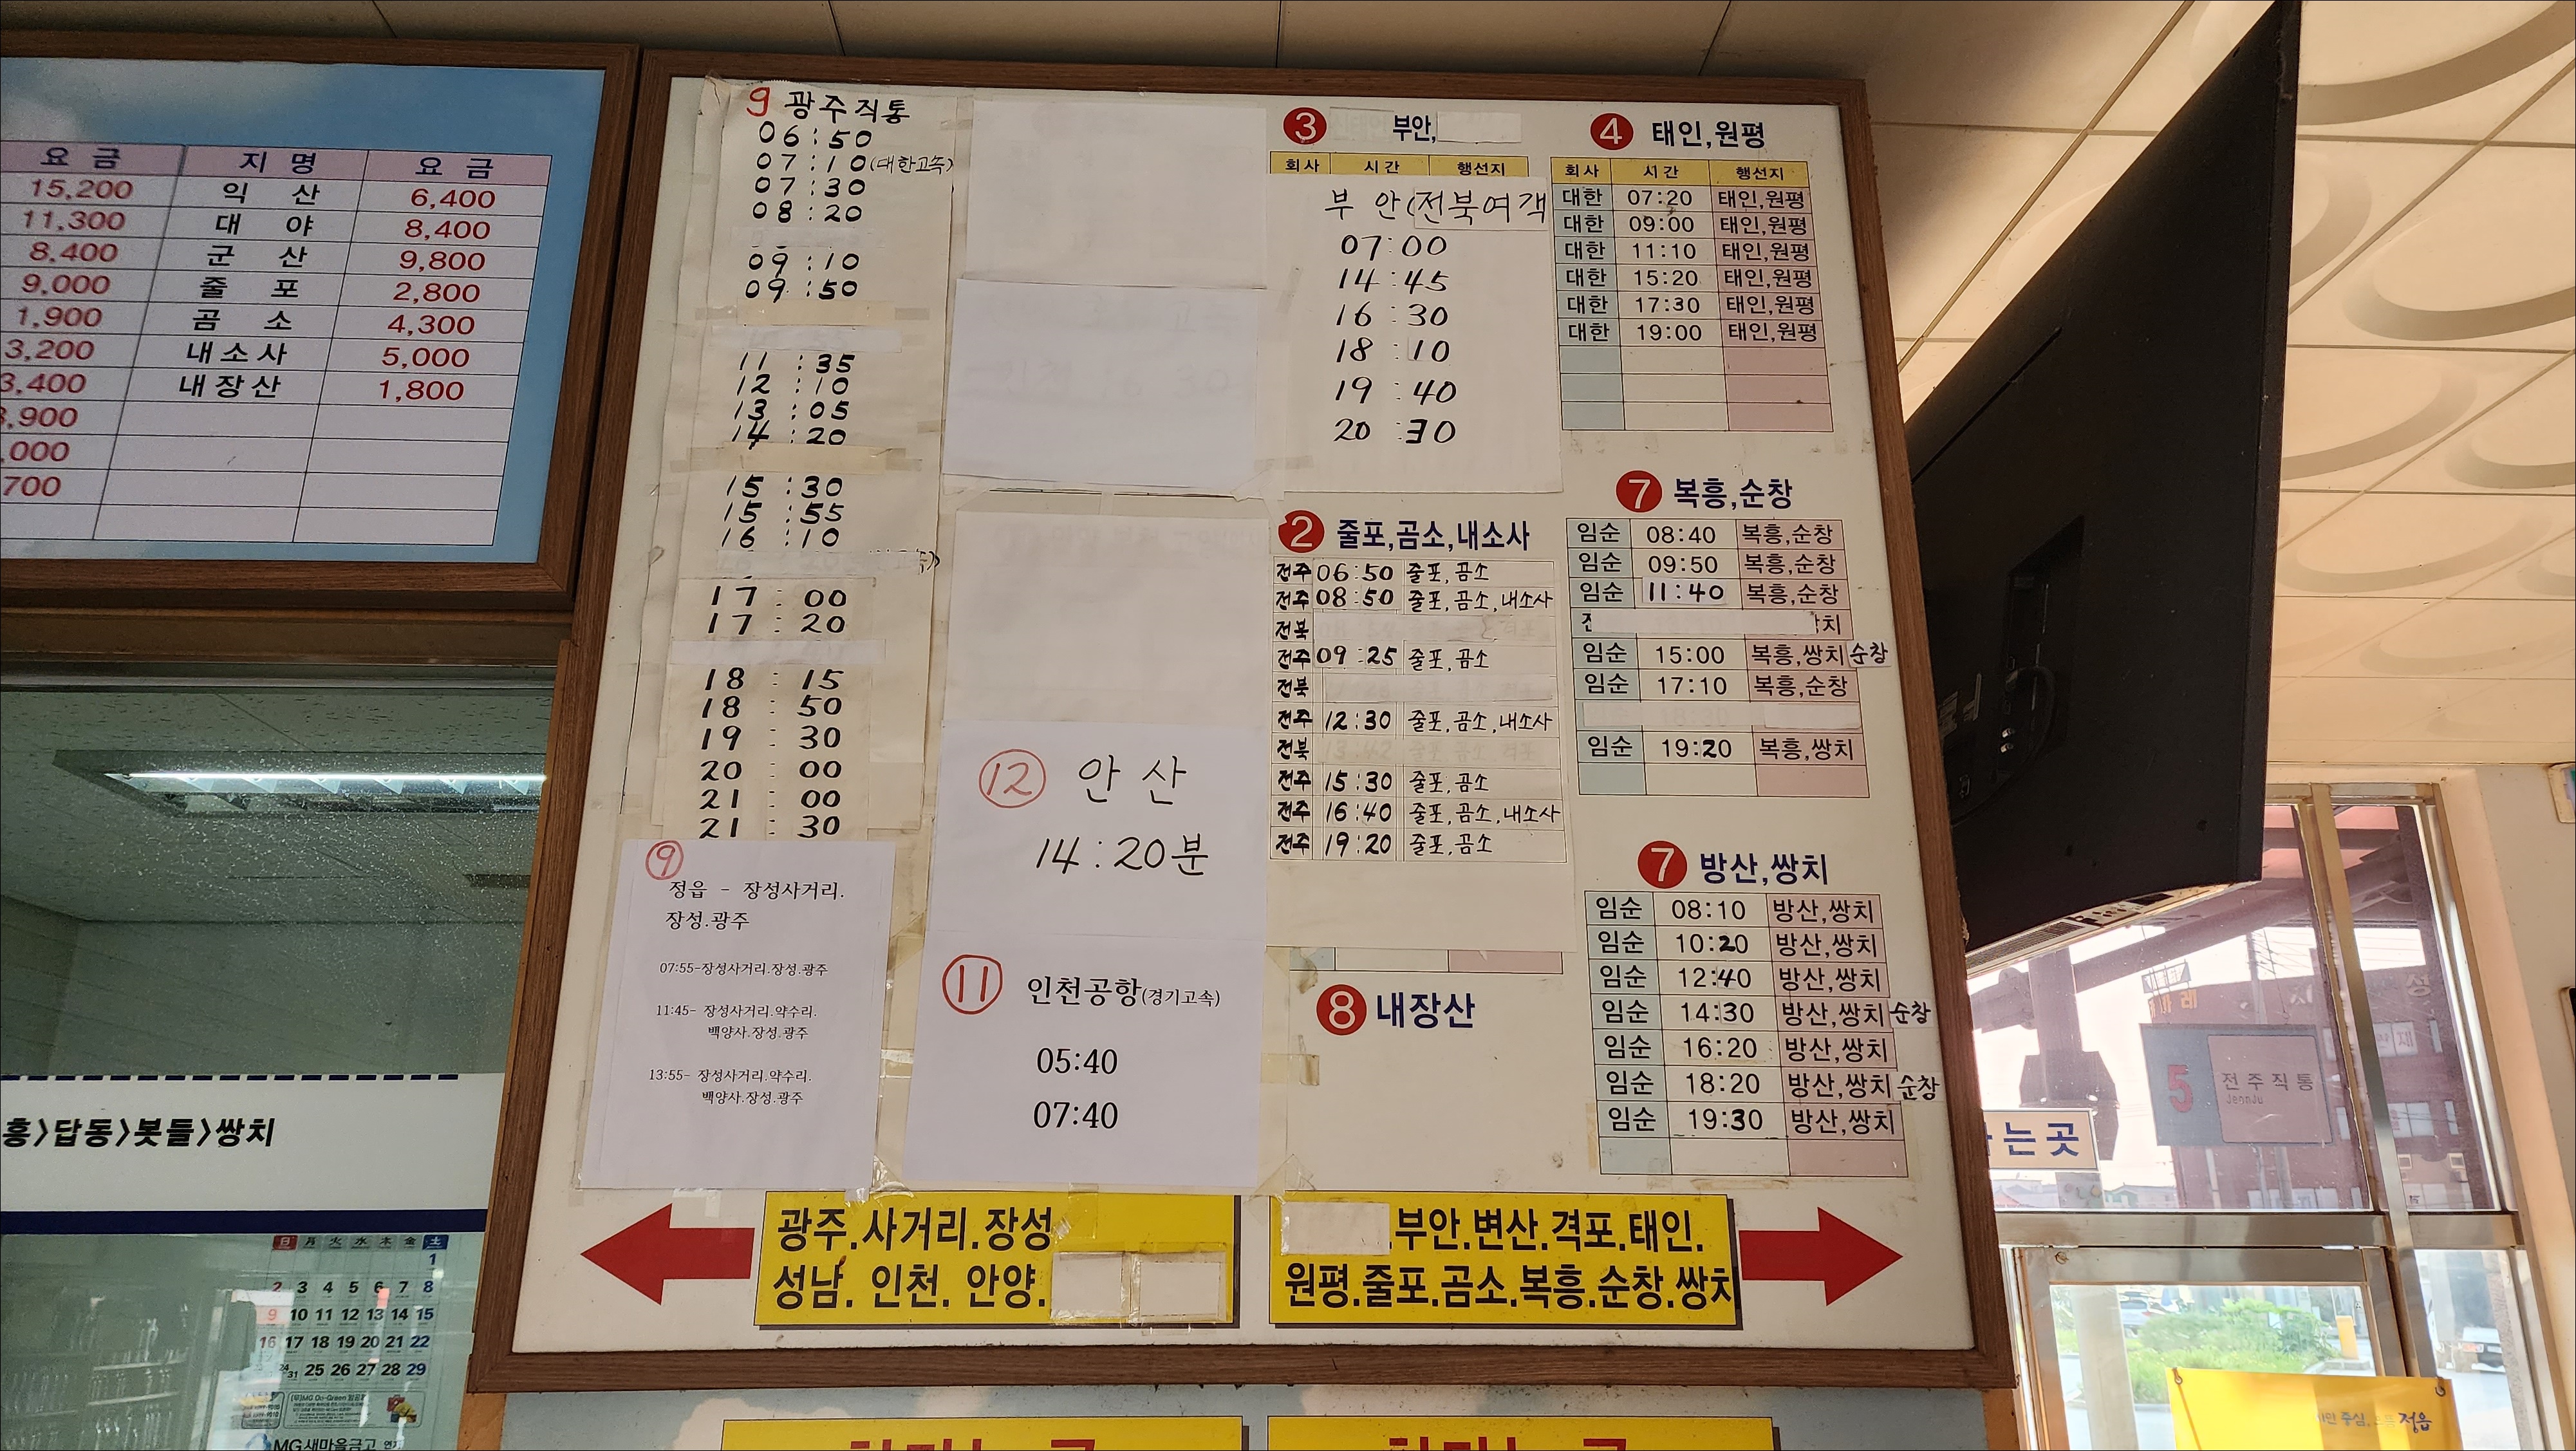 요 금 지 명 요 금
15,200 익 산 6,400
11,300 대 야 8,400
8,400 군 산 9,800
9,000 줄 포 2,800
1,900 곰 소 4,300
3,200 내소사 5,000
3,400 내장산 1,800
,900
,000
700
9 광주직통
06:50
07:10(대한고속)
07:30
08:20
09:10
09:50
11:35
12:10
13:05
14:20
15:30
15:55
16:10
17:00
17:20
18:15
18:50
19:30
20:00
21:00
21:30
9
정읍 - 장성사거리.
장성.광주
07:55-장성사거리.장성.광주
11:45- 장성사거리.약수리.
백양사.장성.광주
13:55- 장성사거리.약수리.
백양사.장성.광주
12 안산
14:20분
11 인천공항(경기고속)
05:40
07:40
3 부안,
회사 시간 행선지
부 안(전북여객
07:00
14:45
16:30
18:10
19:40
20:30
2 줄포,곰소,내소사
전주 06:50 줄포,곰소
전주 08:50 줄포,곰소,내소사
전북
전주 09:25 줄포,곰소
전북
전주 12:30 줄포,곰소,내소사
전북
전주 15:30 줄포,곰소
전주 16:40 줄포,곰소,내소사
전주 19:20 줄포,곰소
8 내장산
4 태인,원평
회사 시간 행선지
대한 07:20 태인,원평
대한 09:00 태인,원평
대한 11:10 태인,원평
대한 15:20 태인,원평
대한 17:30 태인,원평
대한 19:00 태인,원평
7 복흥,순창
임순 08:40 복흥,순창
임순 09:50 복흥,순창
임순 11:40 복흥,순창
치
임순 15:00 복흥,쌍치순창
임순 17:10 복흥,순창
임순 19:20 복흥,쌍치
7 방산,쌍치
임순 08:10 방산,쌍치
임순 10:20 방산,쌍치
임순 12:40 방산,쌍치
임순 14:30 방산,쌍치순창
임순 16:20 방산,쌍치
임순 18:20 방산,쌍치순창
임순 19:30 방산,쌍치
광주.사거리.장성
성남. 인천. 안양.
.부안.변산.격포.태인.
원평.줄포.곰소.복흥.순창.쌍치
흥>답동>봇들>쌍치
日 月 火 水 木 金 土
1
2 3 4 5 6 7 8
9 10 11 12 13 14 15
16 17 18 19 20 21 22
24/31 25 26 27 28 29
MG새마을금고
5 전주직통
JeonJu
는곳
정읍